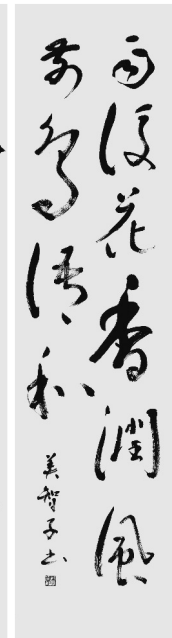 雨後花香潤風
前鳥語和
美智子書